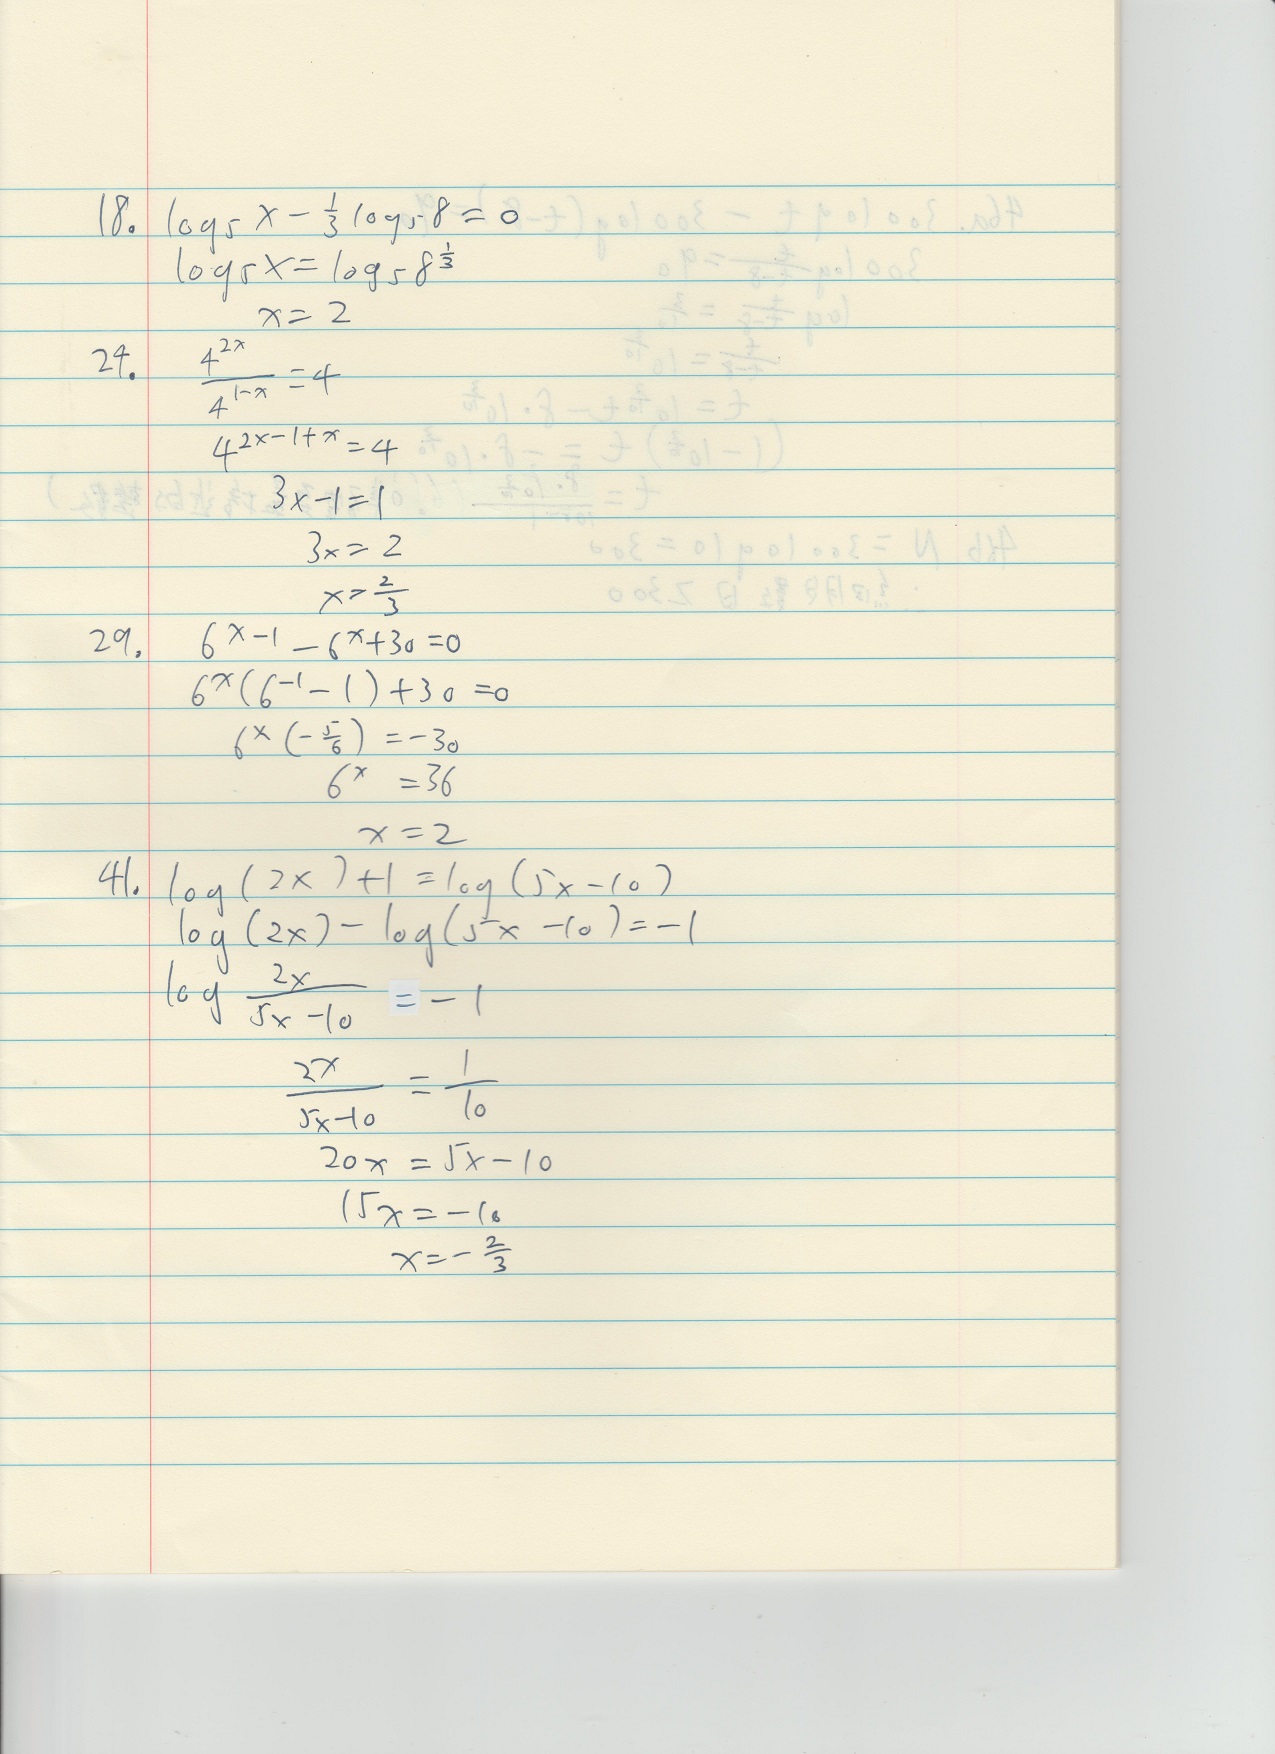 18. log₅ x − ⅓ log₅ 8 = 0
log₅ x = log₅ 8^⅓
x = 2
24. 4^(2x) / 4^(1−x) = 4
4^(2x−1+x) = 4
3x−1 = 1
3x = 2
x = 2/3
29. 6^(x−1) − 6^x + 30 = 0
6^x (6^(−1) − 1) + 30 = 0
6^x (−5/6) = −30
6^x = 36
x = 2
41. log (2x) + 1 = log (5x − 10)
log (2x) − log (5x − 10) = −1
log 2x / (5x − 10) = − 1
2x / (5x−10) = 1/10
20x = 5x − 10
15x = −10
x = − 2/3